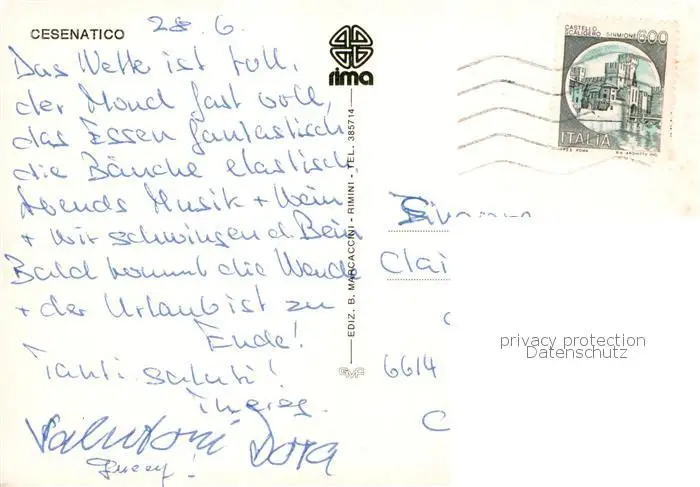 CESENATICO
28.6.
Das Wette ist toll,
der Mond fast voll,
das Essen fantastisch
die Bäuche elastisch
Abends Musik + Wein
+ wir schwingen d. Bein
Bald kommt die Wende
+ der Urlaub ist zu
Ende!
Tanti saluti!
rima
EDIZ. B. MARCACCINI - RIMINI - TEL. 385714
GVF
CASTELLO
SCALIGERO SIRMIONE
600
ITALIA
Clai
6614
privacy protection
Datenschutz